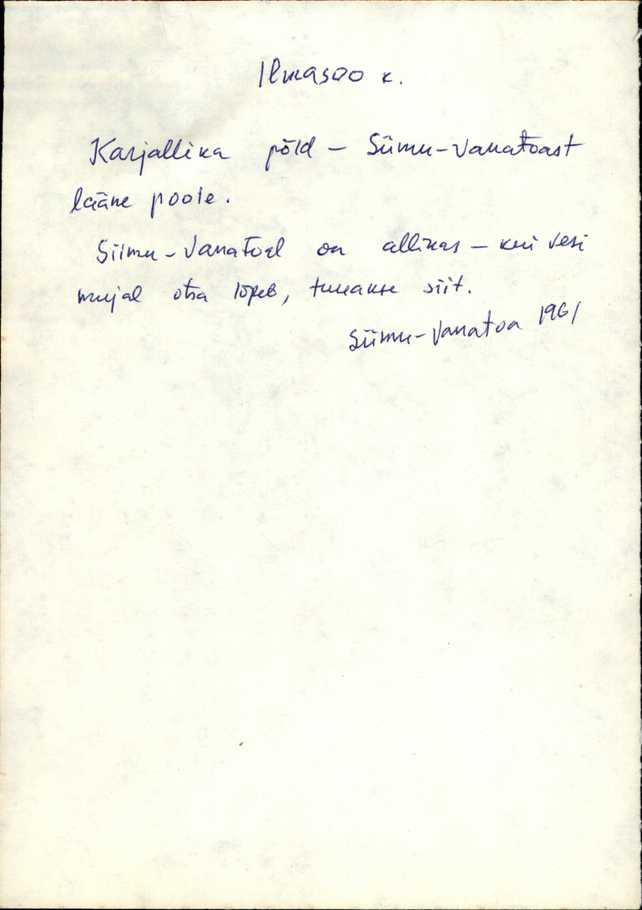 Ilmasoo k.
Karjallika põld – Siimu-Vanatoast
lääne poole.
Siimu-Vanatoal on allikas – kui vesi
mujal otsa lõpeb, tuuakse siit.
Siimu-Vanatoa 1961